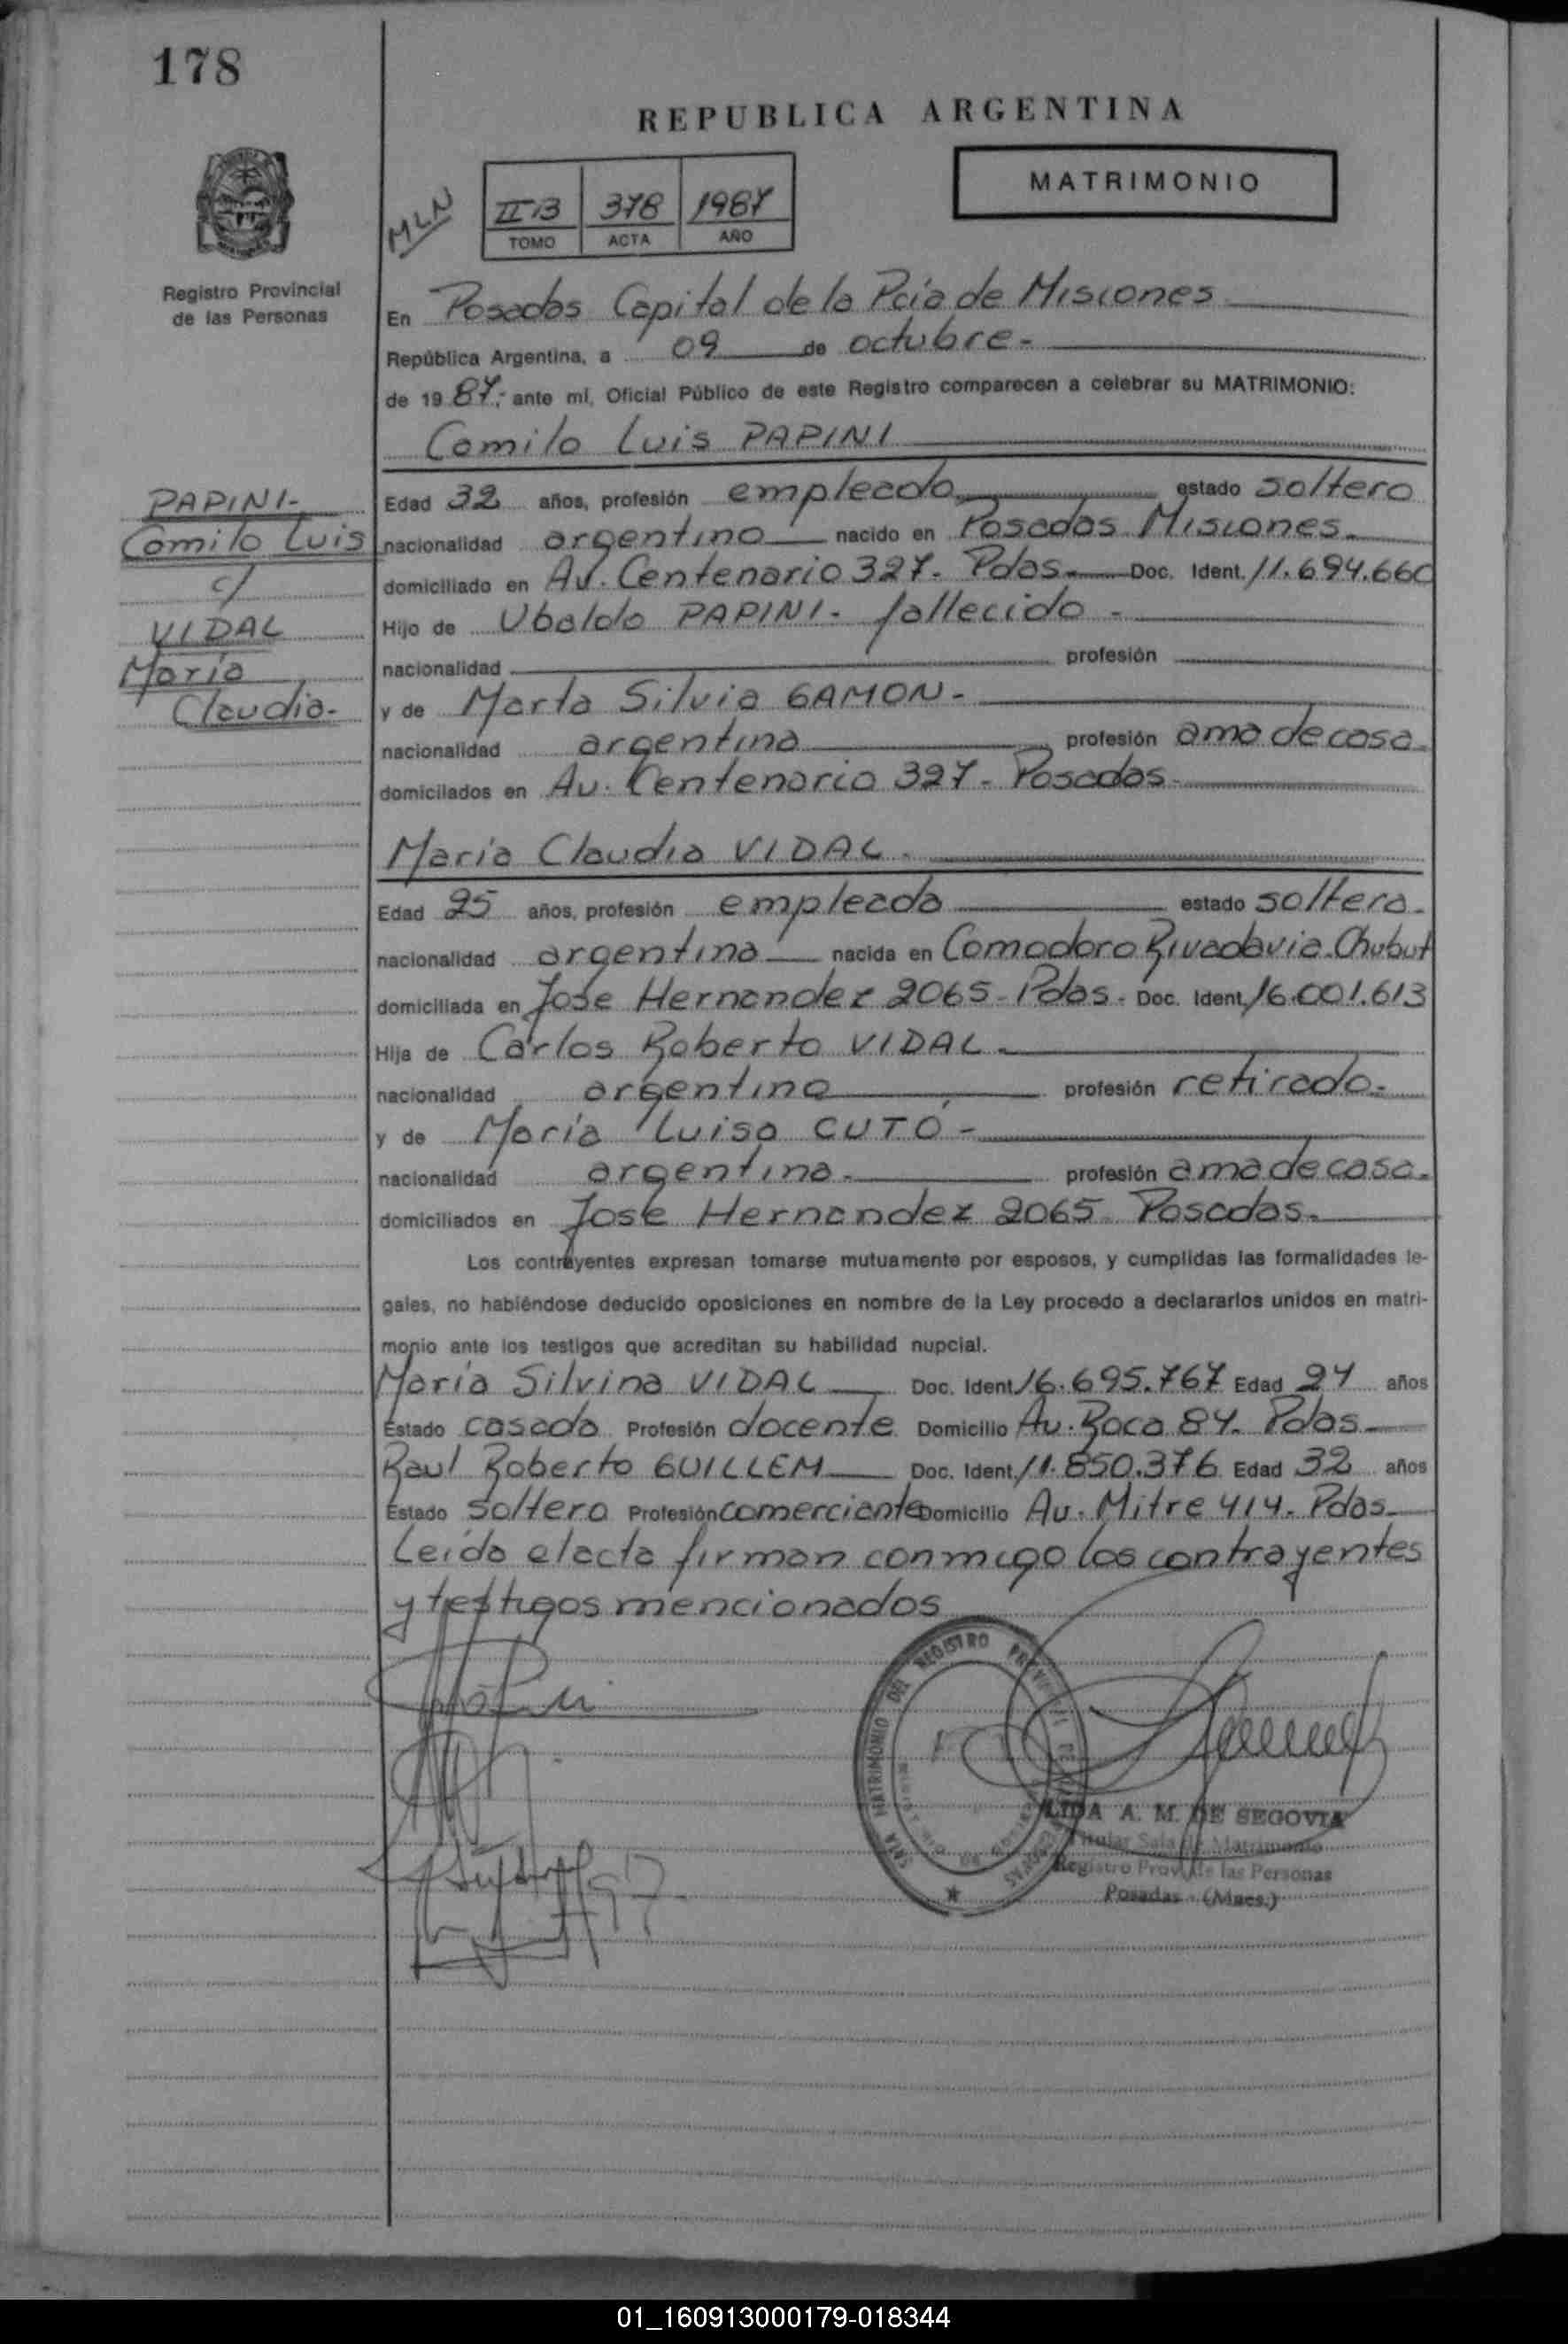 178
REPUBLICA ARGENTINA
MATRIMONIO
MLN
II B 378 1987
TOMO ACTA AÑO
Registro Provincial
de las Personas
En Posadas Capital de la Pcia de Misiones
República Argentina, a 09 de octubre.-
de 19 87.- ante mi, Oficial Público de este Registro comparecen a celebrar su MATRIMONIO:
Camilo Luis PAPINI
PAPINI-
Camilo Luis
c/
VIDAL
María
Claudia.-
Edad 32 años, profesión empleado estado soltero
nacionalidad argentino nacido en Posadas Misiones.
domiciliado en Av. Centenario 327- Pdas. Doc. Ident. 11.694.660
Hijo de Ubaldo PAPINI- fallecido -
nacionalidad profesión
y de Marta Silvia GAMON-
nacionalidad argentina profesión ama de casa-
domicilados en Av. Centenario 327- Posadas-
María Claudia VIDAL.
Edad 25 años, profesión empleada estado soltera.
nacionalidad argentina nacida en Comodoro Rivadavia-Chubut
domiciliada en Jose Hernandez 2065- Pdas- Doc. Ident. 16.001.613
Hija de Carlos Roberto VIDAL-
nacionalidad argentino profesión retirado-
y de María Luisa CUTÓ-
nacionalidad argentina- profesión ama de casa-
domiciliados en José Hernandez 2065 Posadas-
Los contrayentes expresan tomarse mutuamente por esposos, y cumplidas las formalidades le-
gales, no habiéndose deducido oposiciones en nombre de la Ley procedo a declararlos unidos en matri-
monio ante los testigos que acreditan su habilidad nupcial.
María Silvina VIDAL Doc. Ident. 16.695.767 Edad 24 años
Estado casada Profesión docente Domicilio Av. Roca 84- Pdas-
Raul Roberto GUILLEM Doc. Ident. 11.850.376 Edad 32 años
Estado soltero Profesión comerciante Domicilio Av. Mitre 414- Pdas-
Leída el acta firman conmigo los contrayentes
y testigos mencionados
SALA MATRIMONIO DEL REGISTRO
LIDA A. M. DE SEGOVIA
Titular Sala de Matrimonio
Registro Prov. de las Personas
Posadas - (Mnes.)
01_160913000179-018344